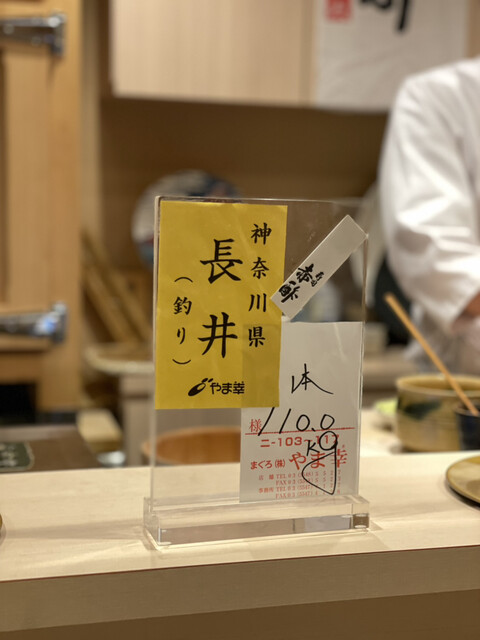 神奈川県
長井
（釣り）
やま幸
赤酢
本
110.0
kg
様
ニ-103-111
まぐろ㈱やま幸